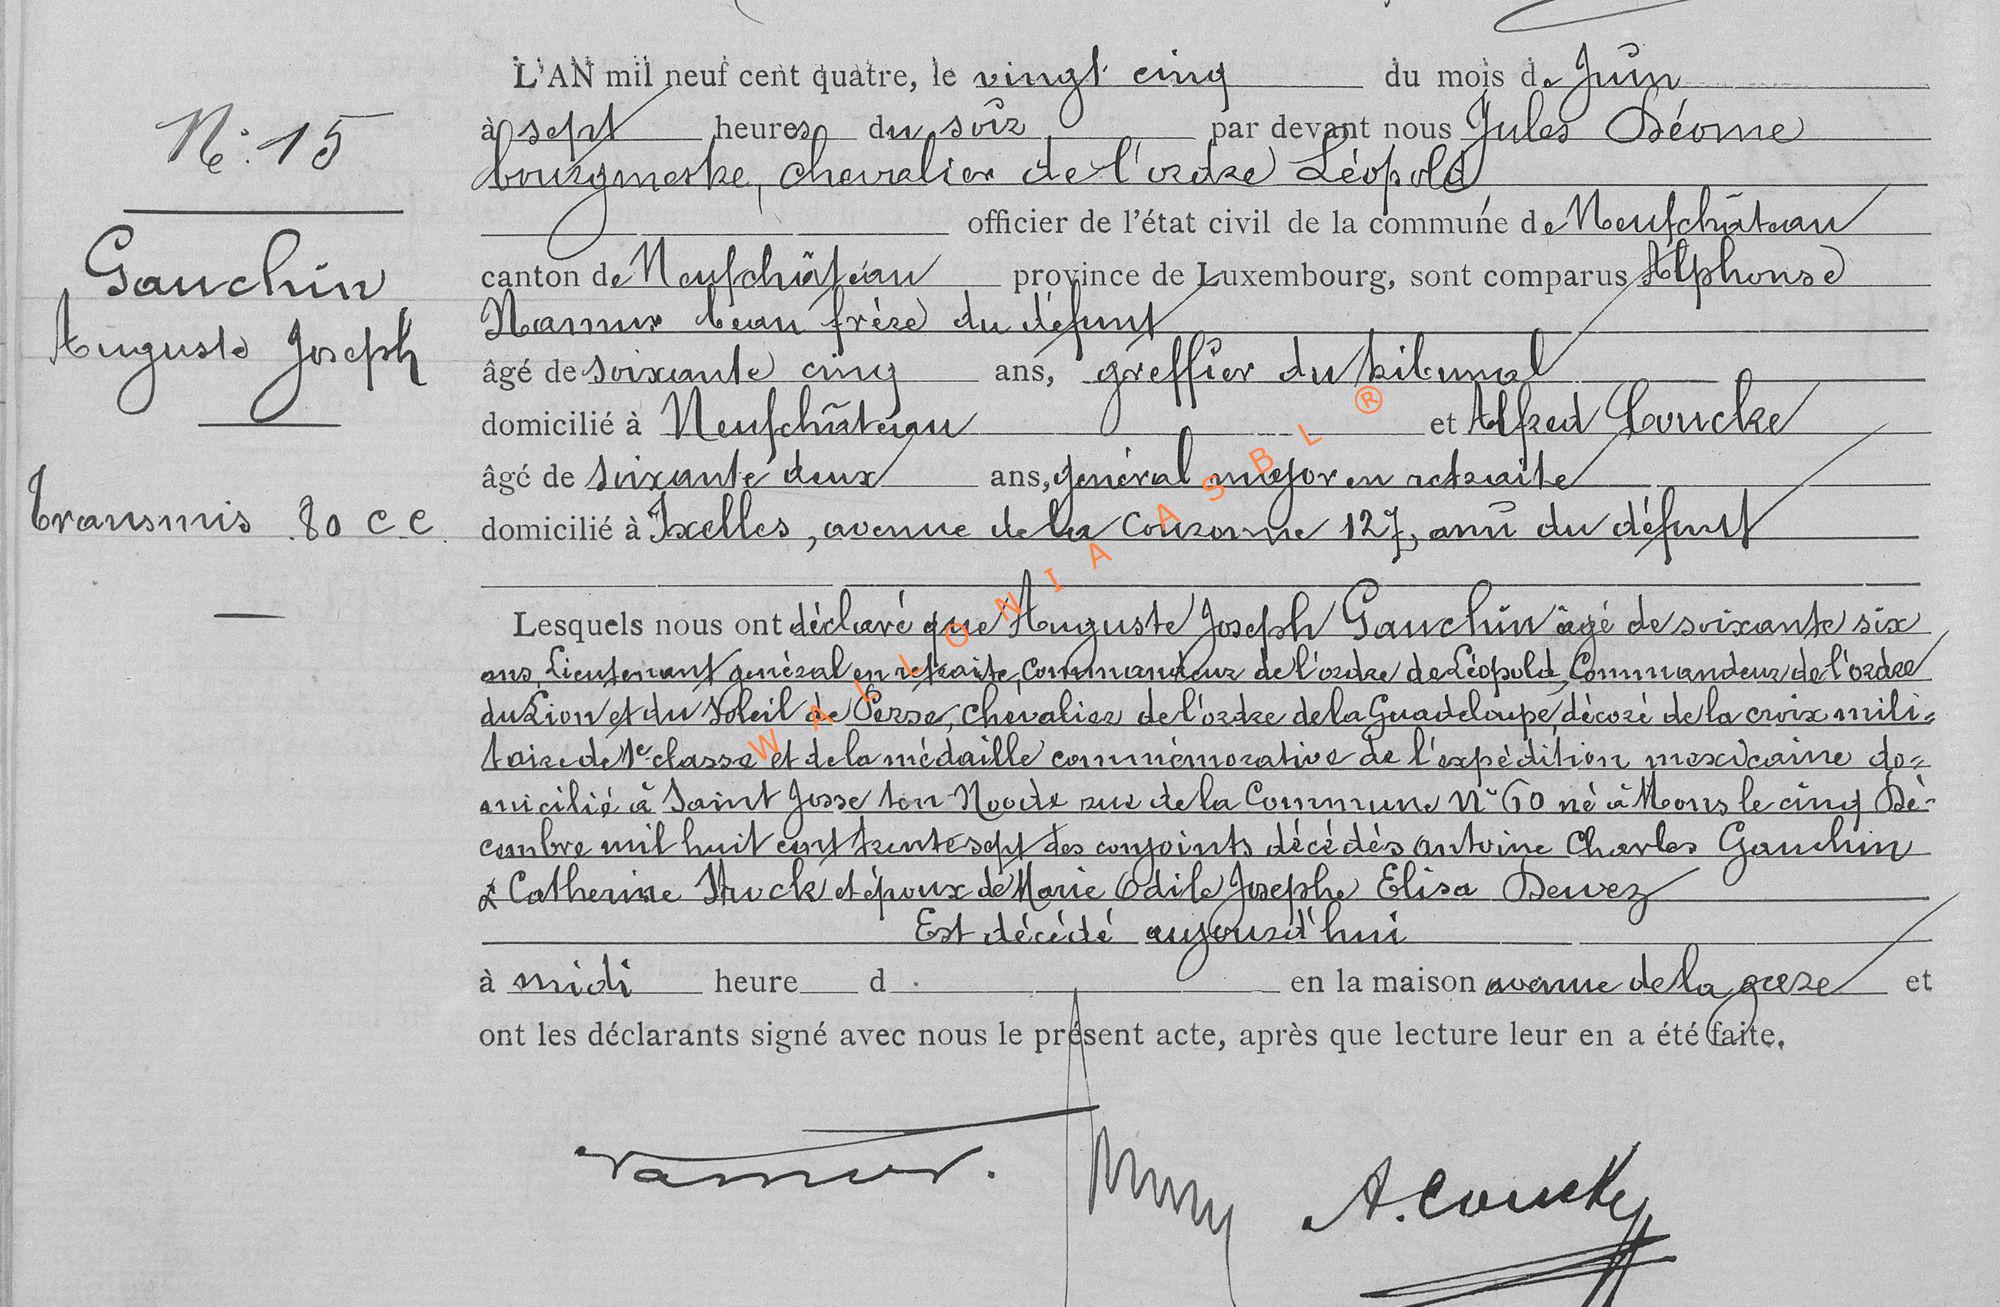 N° 15
Gauchin
Auguste Joseph
Transmis 80 c.c.
L'AN mil neuf cent quatre, le vingt cinq du mois de Juin
à sept heures du soir par devant nous Jules Déome
bourgmestre, chevalier de l'ordre Léopold
officier de l'état civil de la commune de Neufchâteau
canton de Neufchâteau province de Luxembourg, sont comparus Alphonse
Namur beau frère du défunt
âgé de soixante cinq ans, greffier du tribunal
domicilié à Neufchâteau et Alfred Coucke
âgé de soixante deux ans, général major en retraite
domicilié à Ixelles, avenue de la Couronne 127, ami du défunt
Lesquels nous ont déclaré que Auguste Joseph Gauchin âgé de soixante six
ans, Lieutenant général en retraite, Commandeur de l'ordre de Léopold, Commandeur de l'ordre
du Lion et du Soleil de Perse, Chevalier de l'ordre de la Guadeloupe, décoré de la croix mili=
taire de 1e classe et de la médaille commémorative de l'expédition mexicaine do=
micilié à Saint Josse ten Noode rue de la Commune N° 60 né à Mons le cinq Dé-
cembre mil huit cent trente sept des conjoints décédés Antoine Charles Gauchin
& Catherine Stuck et époux de Marie Odile Josephe Elisa Dewez
Est décédé aujourd'hui
à midi heure d en la maison avenue de la gare et
ont les déclarants signé avec nous le présent acte, après que lecture leur en a été faite.
Namur. A. Coucke
WALLONIA ASBL ®